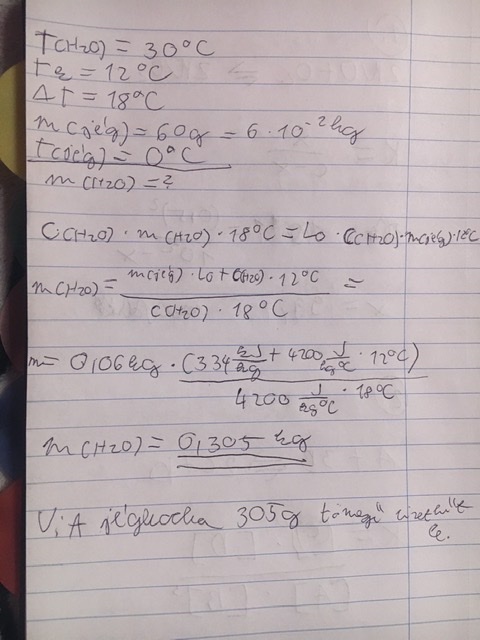 T(H2O) = 30°C
tk = 12°C
Δt = 18°C
m(jég) = 60g = 6·10⁻² kg
t(jég) = 0°C
m(H2O) = ?
C(H2O) · m(H2O) · 18°C = Lo · C(H2O) · m(jég) · 12°C
m(H2O) = m(jég) · Lo + C(H2O) · 12°C / C(H2O) · 18°C =
m = 0,06kg · (334 kJ/kg + 4200 J/kg°C · 12°C) / 4200 J/kg°C · 18°C
m(H2O) = 0,305 kg
V: A jégkocka 305g tömegű vizet hűt le.